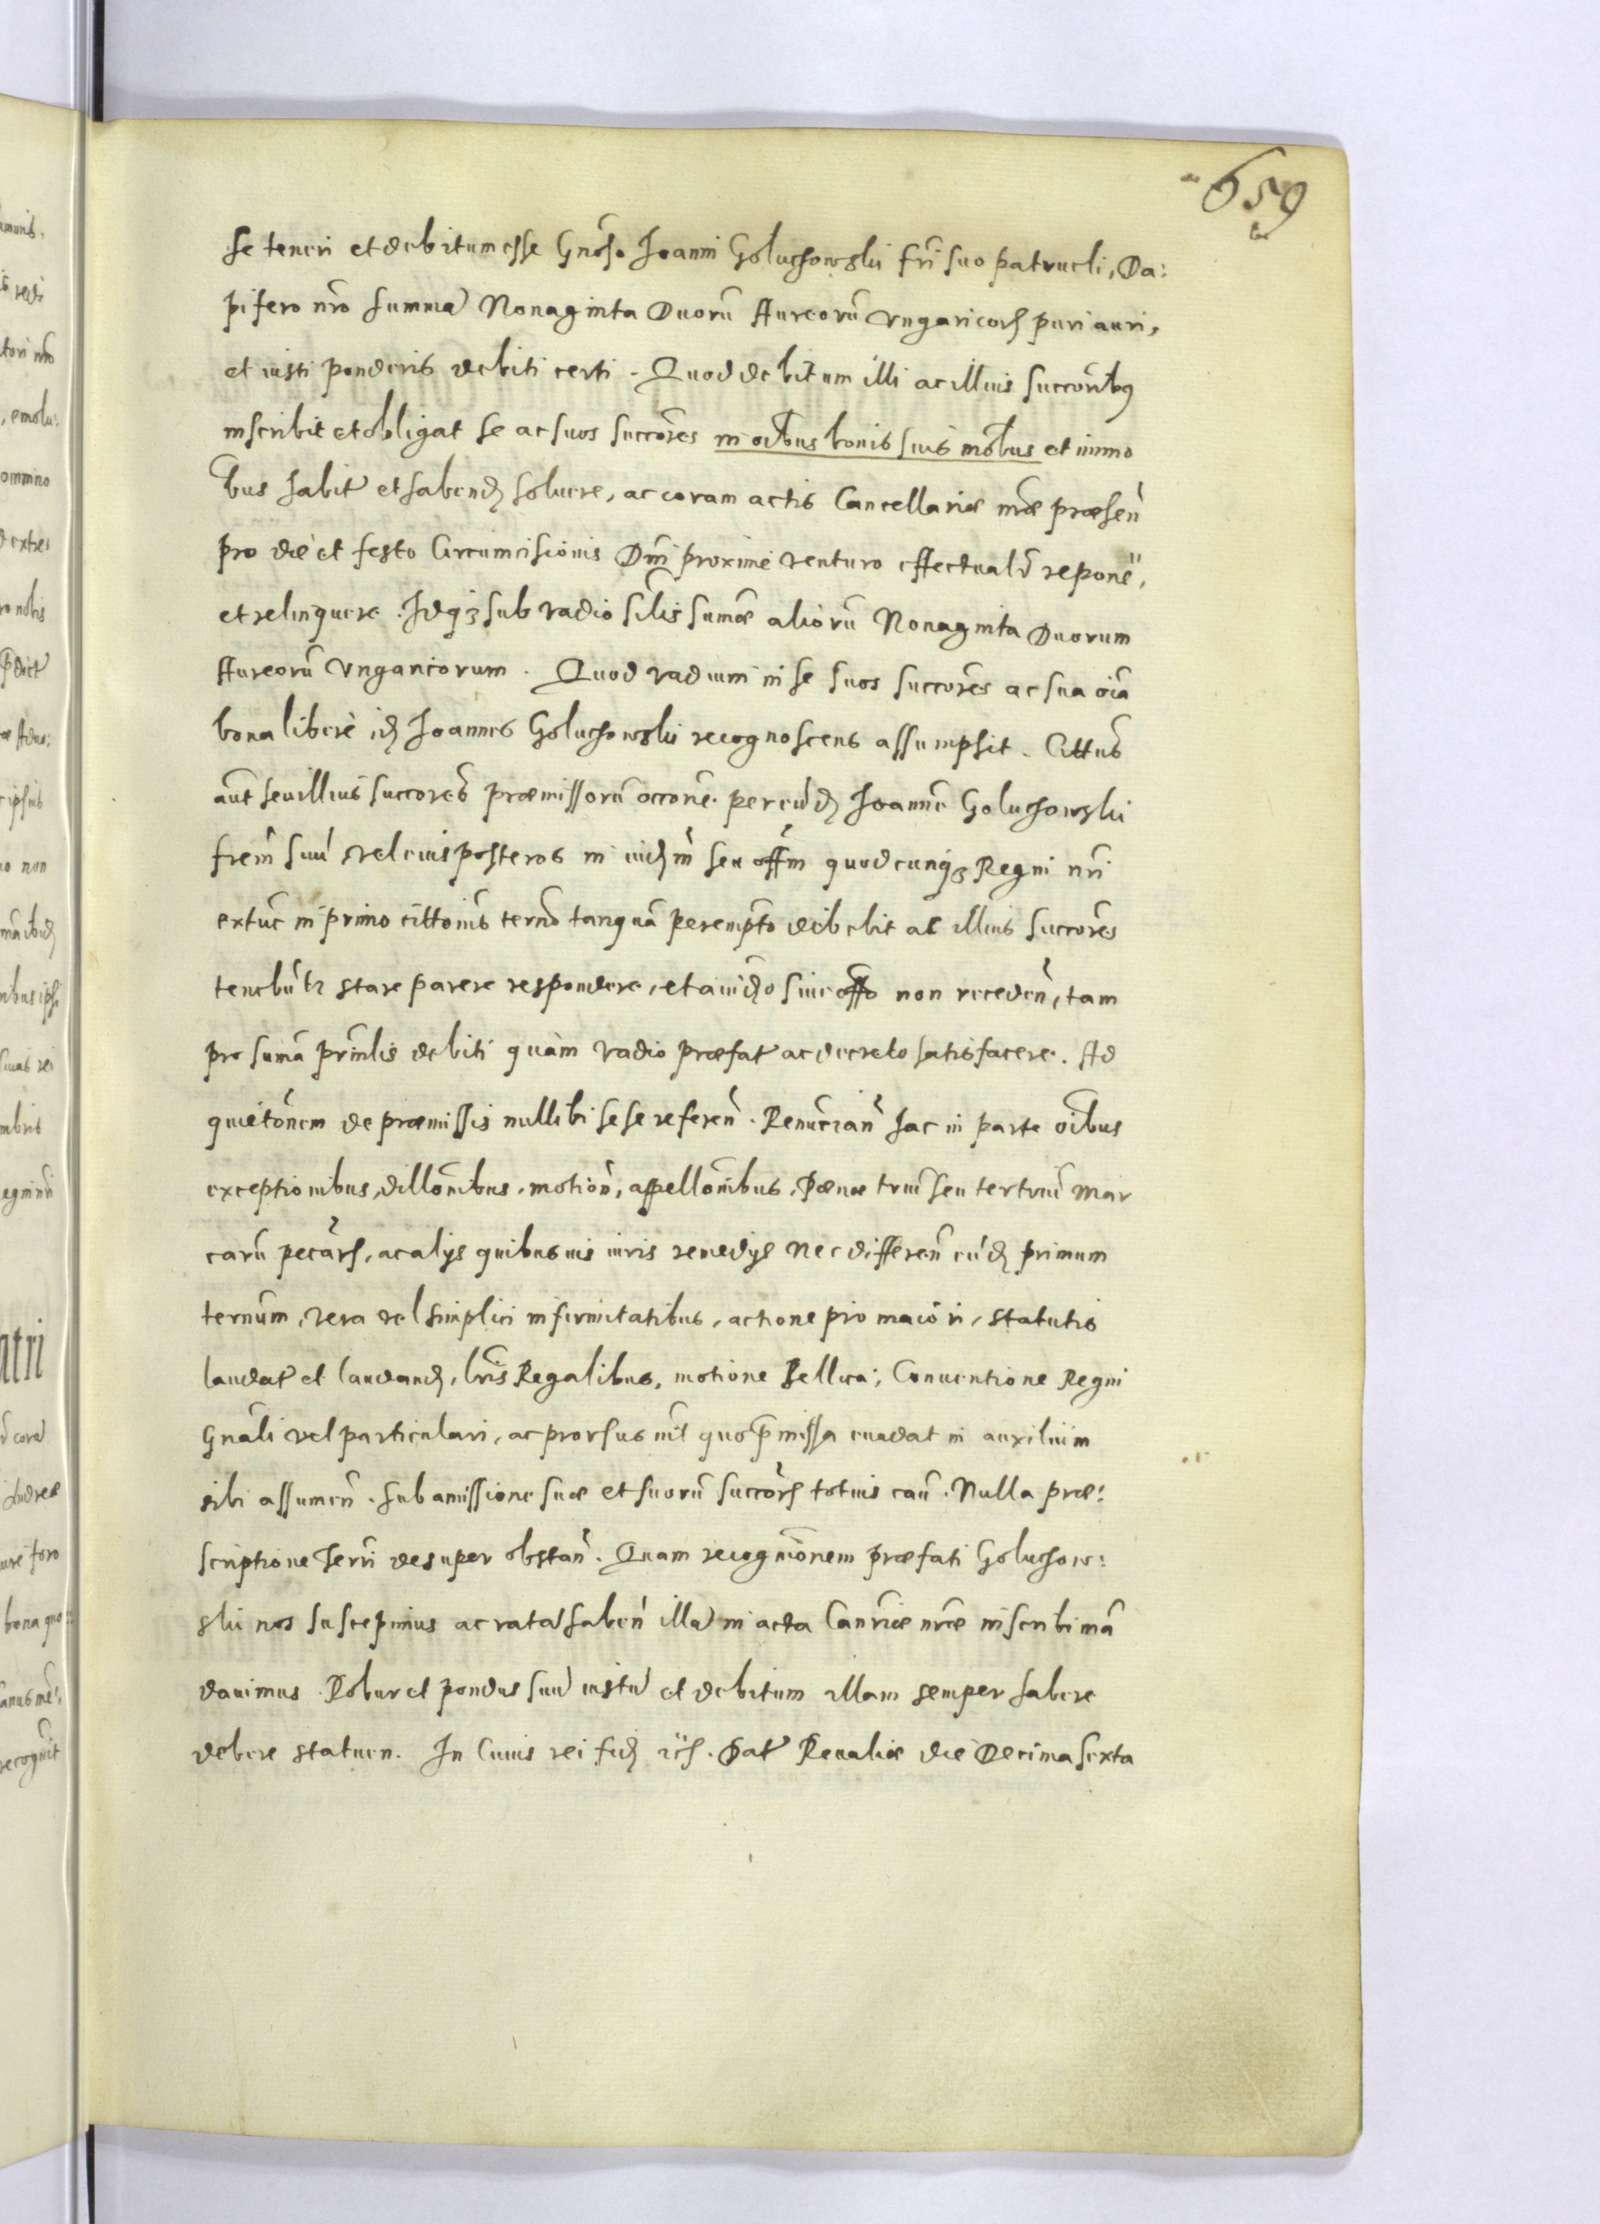 659
se teneri et debitum esse Gnoso Joanni Goluchowski fri suo patrueli, Da:
pifero nro summa Nonaginta Duoru Aureoru Vngaricor puri auri,
et iusti ponderis debiti certi. Quod debitum illi ac illius succoribus
inscribit et obligat se ac suos succores in oibus bonis suis mobus et immo
bus habit et habend soluere, ac coram actis Cancellariæ nræ præsen
pro die et festo Circumcisionis Dni proxime venturo effectualr repone,
et relinquere. Idq3 sub vadio silis sumæ alioru Nonaginta Duorum
Aureoru Vngaricorum. Quod vadium in se suos succores ac sua oia
bona libere id Joannes Goluchowski recognoscens assumpsit. Cittus
aut seu illius succores præmissoru occone per eud Joanne Goluchowski
frem suu vel eius posteros in iudm seu offm quodcunq3 Regni nri
extuc in primo cittonis terno tanqua perempto debebit ac illius succores
tenebutr stare parere respondere, et a iudo siue offo non receden, tam
pro suma prinlis debiti quàm vadio præfat ac decreto satisfacere. Ad
quietonem de præmissis nullibi sese referen. Renuncian hac in parte oibus
exceptionibus, dillonibus, motion, appellonibus, Pœnæ triu seu tertiu Mar
caru pecar, ac alijs quibusuis iuris remedijs Nec differen eud primum
ternum, vera vel simplici infirmitatibus, actione pro maiori, statutis
laudat et laudand, lris Regalibus, motione Bellica, Conuentione Regni
Gnali vel particulari, ac prorsus nil quo pmissa euadat in auxilium
sibi assumen. Sub amissione suæ et suoru succor totius cau. Nulla præ:
scriptione terri desuper obstan. Quam recognionem præfati Goluchow:
ski nos suscepimus ac rata haben illa in acta Canriæ nræ inscribi man
dauimus. Robur et pondus suu iustu et debitum illam semper habere
debere statuen. In Cuius rei fid etc. Dat Reualiæ die Decima sexta